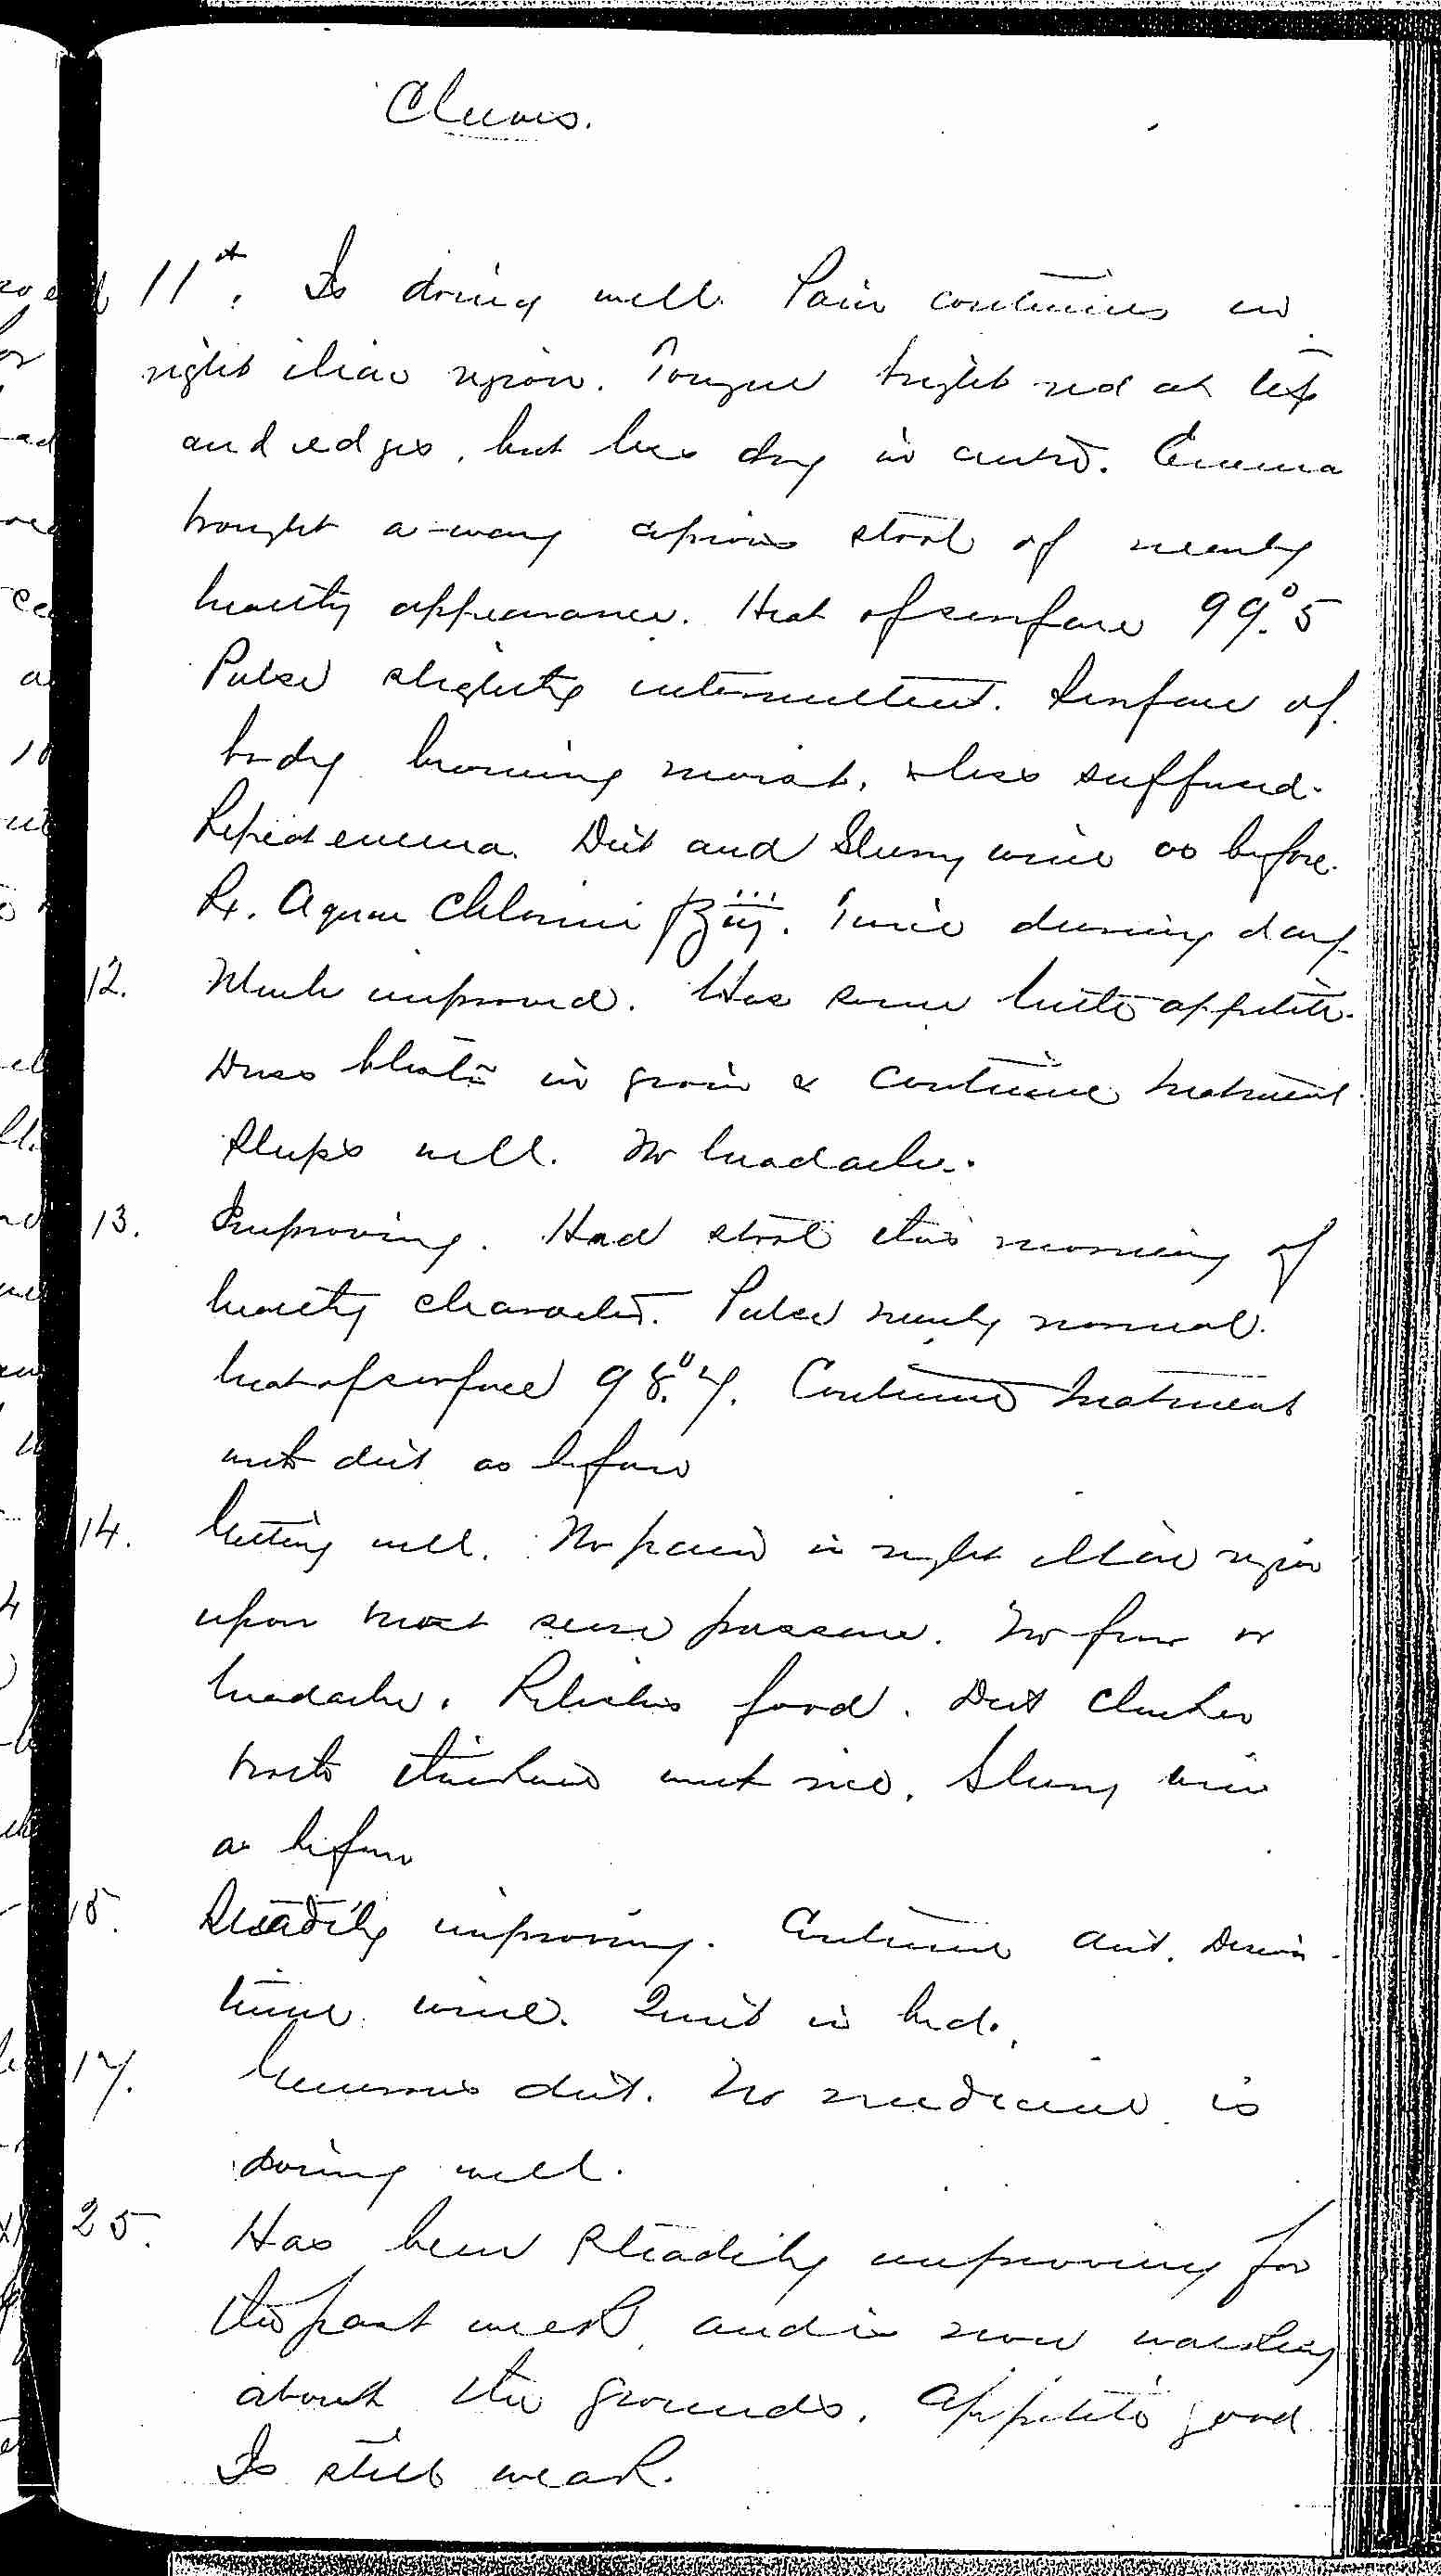 Cluvis.
11th. Is doing well. Pain continues in
right iliac region. Tongue bright red at tip
and edges, but less dry in centre. Enema
brought a-way copious stool of nearly
healthy appearance. Heat of surface 99.°5
Pulse slightly intermittent. Surface of
body becoming moist, & less suffused.
Repeat enema. Diet and Sherry wine as before.
Rx. Aquae Chlorinii f℥iij. Twice during day.
12. Much improved. Has some little appetite.
Dress blister in groin & continue treatment.
Sleeps well. No headache.
13. Improving. Had stool this morning of
healthy character. Pulse nearly normal.
heat of surface 98.°7. Continue treatment
with diet as before
14. Getting well. No pain in right illiac region
upon most severe pressure. No fever or
headache. Relishes food. Diet chicken
broth thickened with rice. Sherry wine
as before
15. Steadily improving. Continue diet. Discon-
tinue wine. Quiet in bed.
17. Generous diet. No medicine. is
doing well.
25. Has been steadily improving for
the past week, and is now walking
about the grounds. Appetite good.
Is still weak.